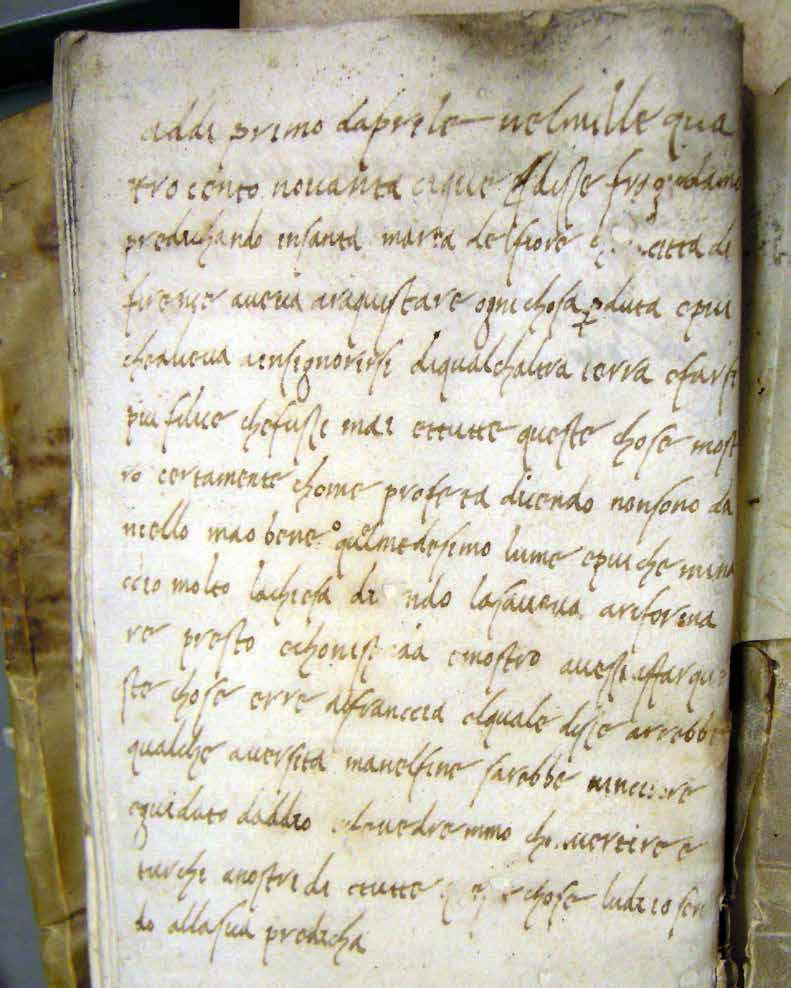 addi primo daprile nelmille qua
tro cento nouanta cique disse fra
predichando insanta maria del fiore citta di
firenze aueua araquistare ogni chosa pduta epiu
cheaueua ainsignorirsi diqualchaltra terra efarsi
piu filice chefussi mai ettutte queste chose most
ro certamente chome profeta dicendo nonsono da
niello mao bene quelmedesimo lume epiu che mina
ccio molto lachiesa lasaueua ariforma
re presto emostro auessi affar que
ste chose erre difranccia elquale disse arrebbe
qualche auersita manelfine sarebbe
eguidato daddio uedremmo e
turchi anostri di ettutte chose ludi io sen
do allasua predicha